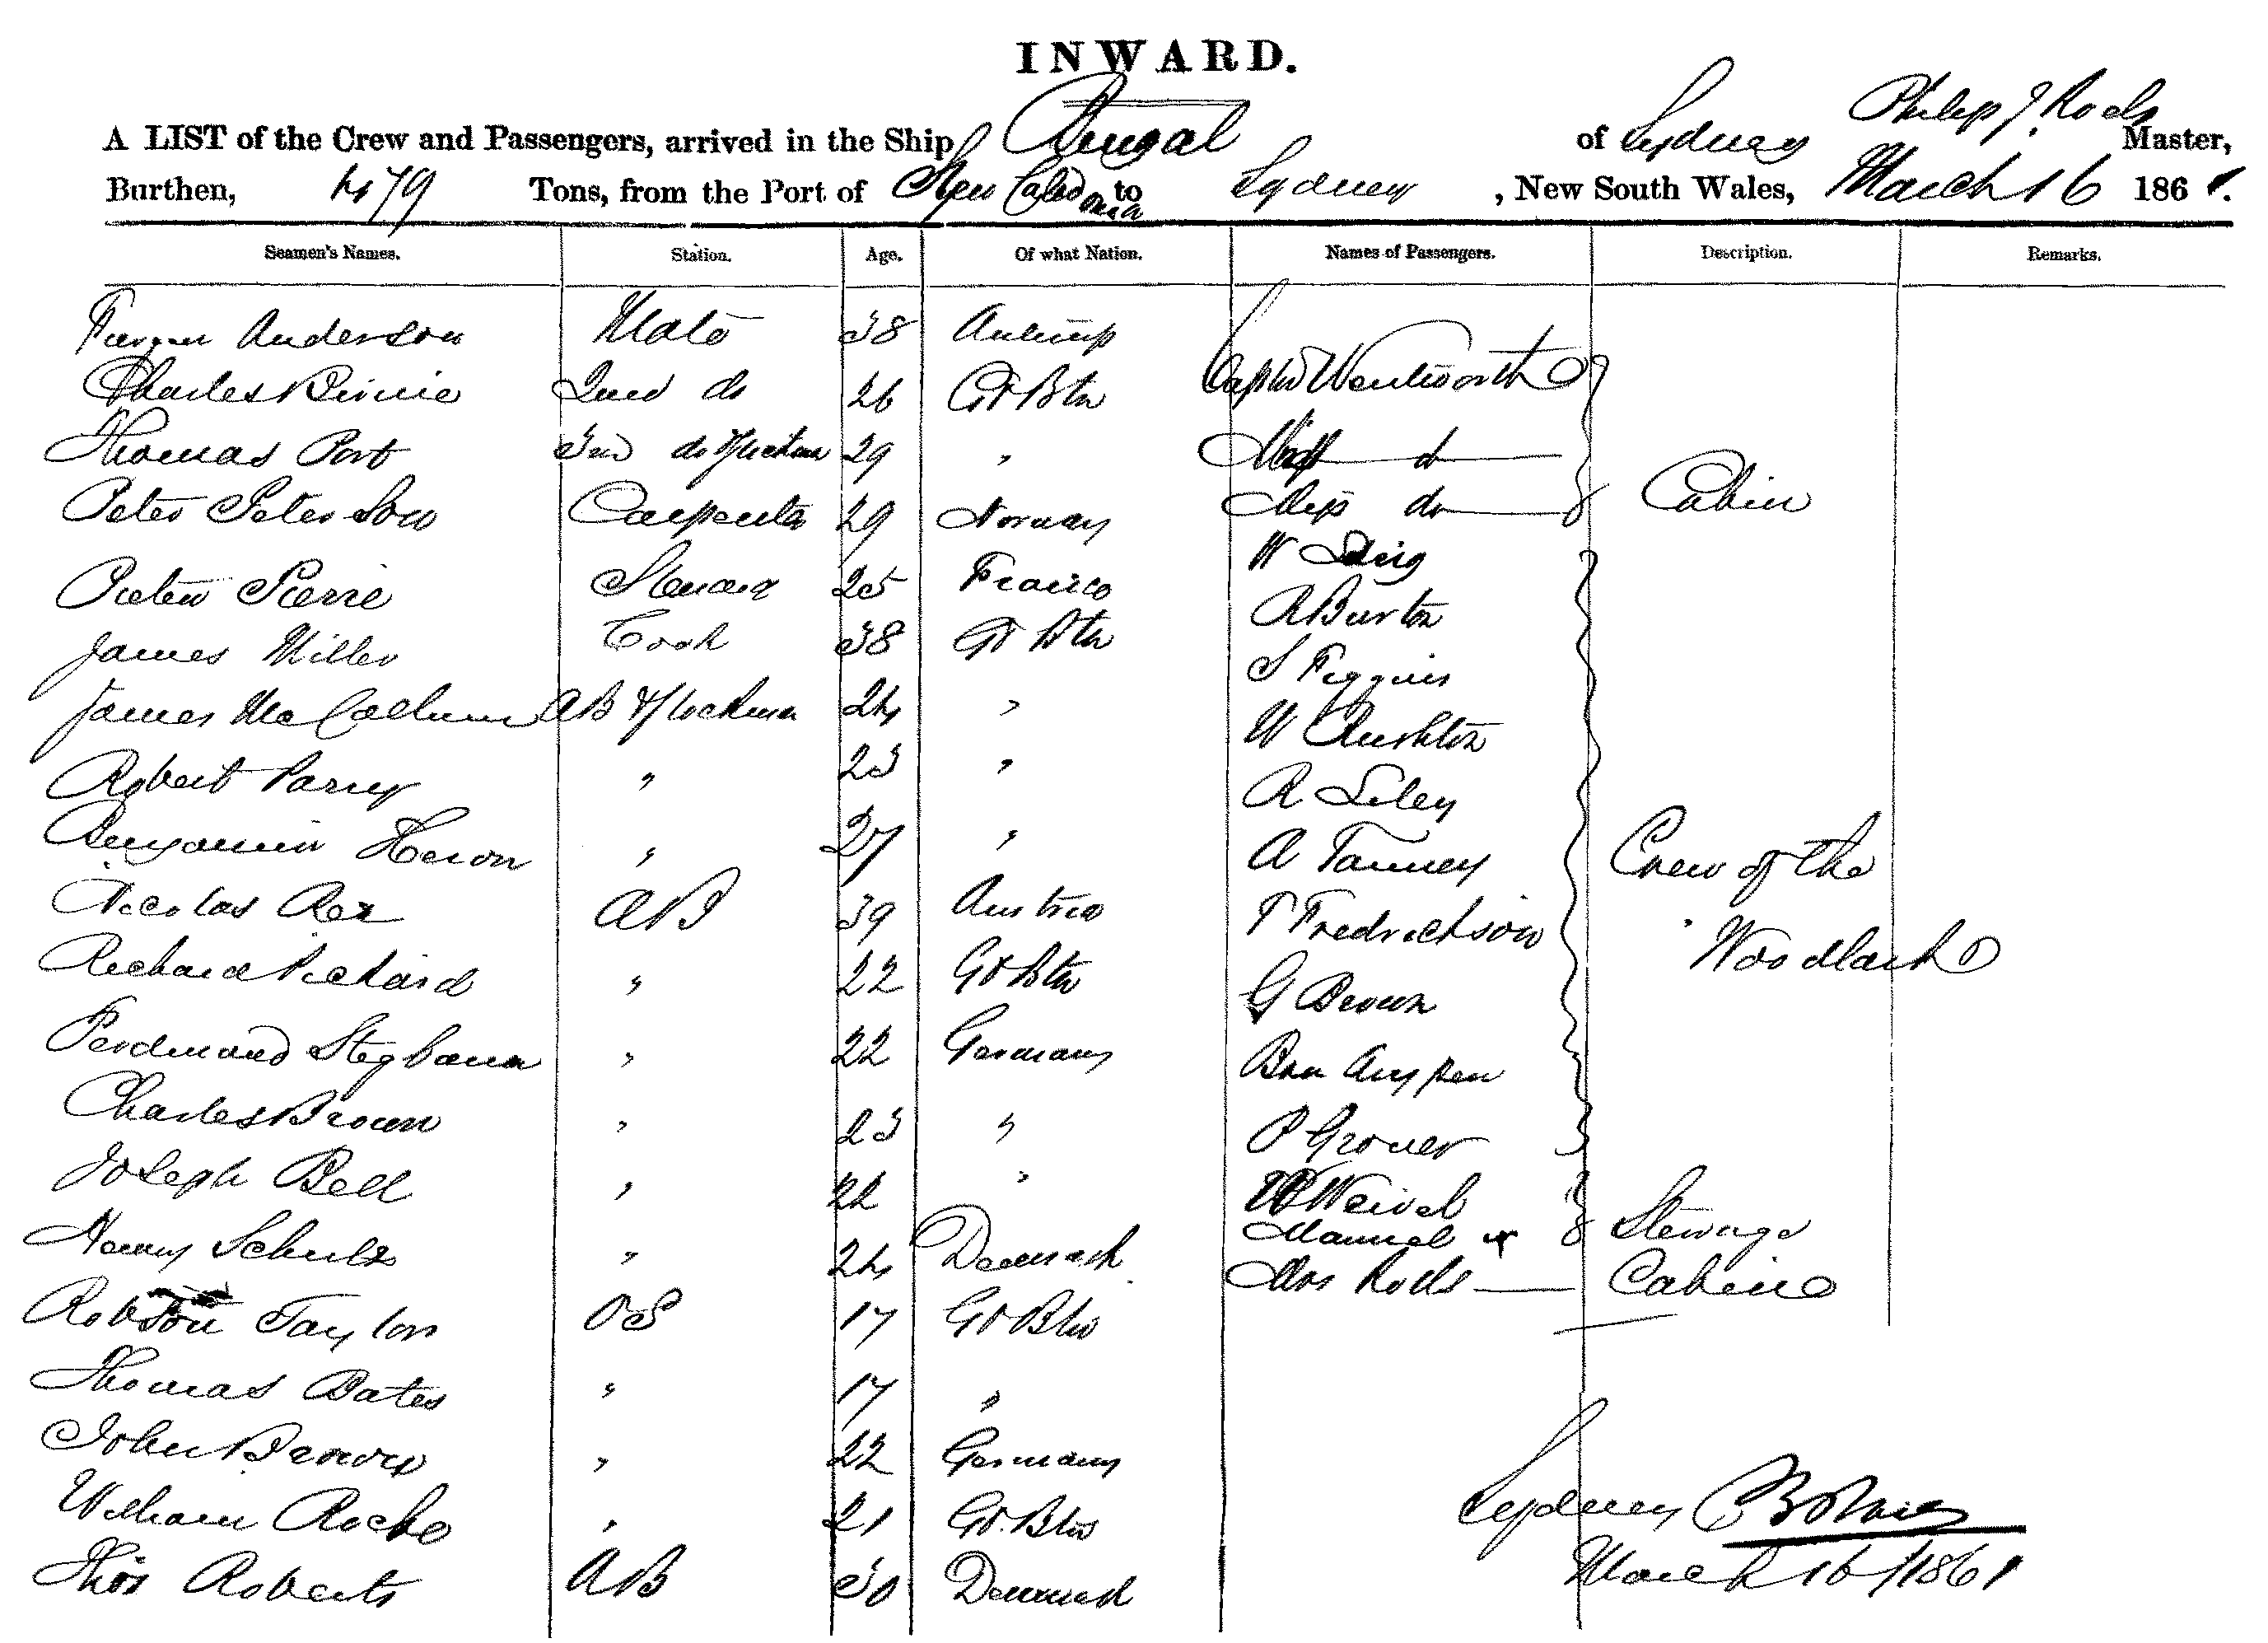 INWARD.
A LIST of the Crew and Passengers, arrived in the Ship of Sydney Philip J. Master,
Burthen, 479 Tons, from the Port of New Caledonia to Sydney, New South Wales, March 16 1861.
Seamen's Names. Station. Age. Of what Nation. Names of Passengers. Description. Remarks.
Anderson Mate 38 Antwerp Wentworth
Charles Birnie 2nd do 26 Gt Btn
Thomas Port 3rd do 29 " do
Peter Peterson Carpenter 29 Norway Miss do Cabin
Pierre Steward 25 France W
James Miller Cook 38 Gt Btn R Burton
James McCallum AB 24 " S Figgins
Robert Parry " 23 " W Rushton
Benjamin Heron " 27 " R Liley
Nicolas Rex AB 39 Austria A Tanney
Richard Pickard " 22 Gt Btn Fredrickson Crew of the
Ferdinand " 22 Germany G Brown Woodlark
Charles Brown " 23 " Ben
Joseph Bell " 22 " P Grover
Henry Schultz " 24 Denmark Manuel Steerage
Taylor OS 17 Gt Btn Mrs Cabin
Thomas Bates " 17 "
John " 22 Germany
William Roche " 21 Gt. Btn Sydney
Thos Roberts AB 30 Denmark March 16/1861